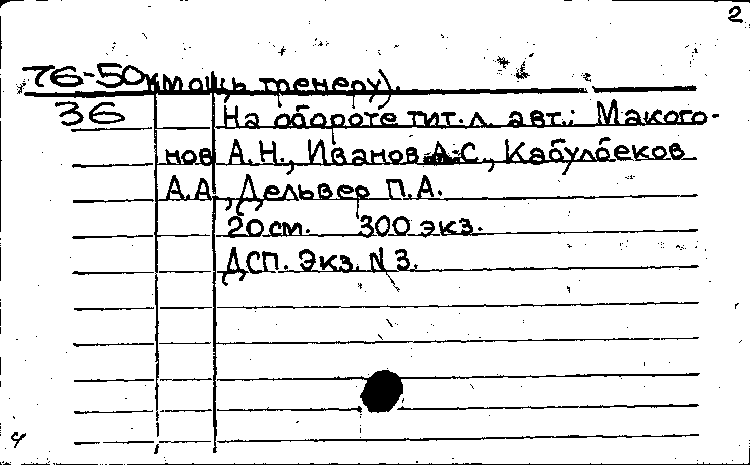 2
76-50 мощь тренеру).
36 На обороте тит. л. авт.: Макого-
нов А.Н., Иванов А.С., Кабулбеков
А.А., Дельвер П.А.
20 см. 300 экз.
ДСП. Экз. N 3.